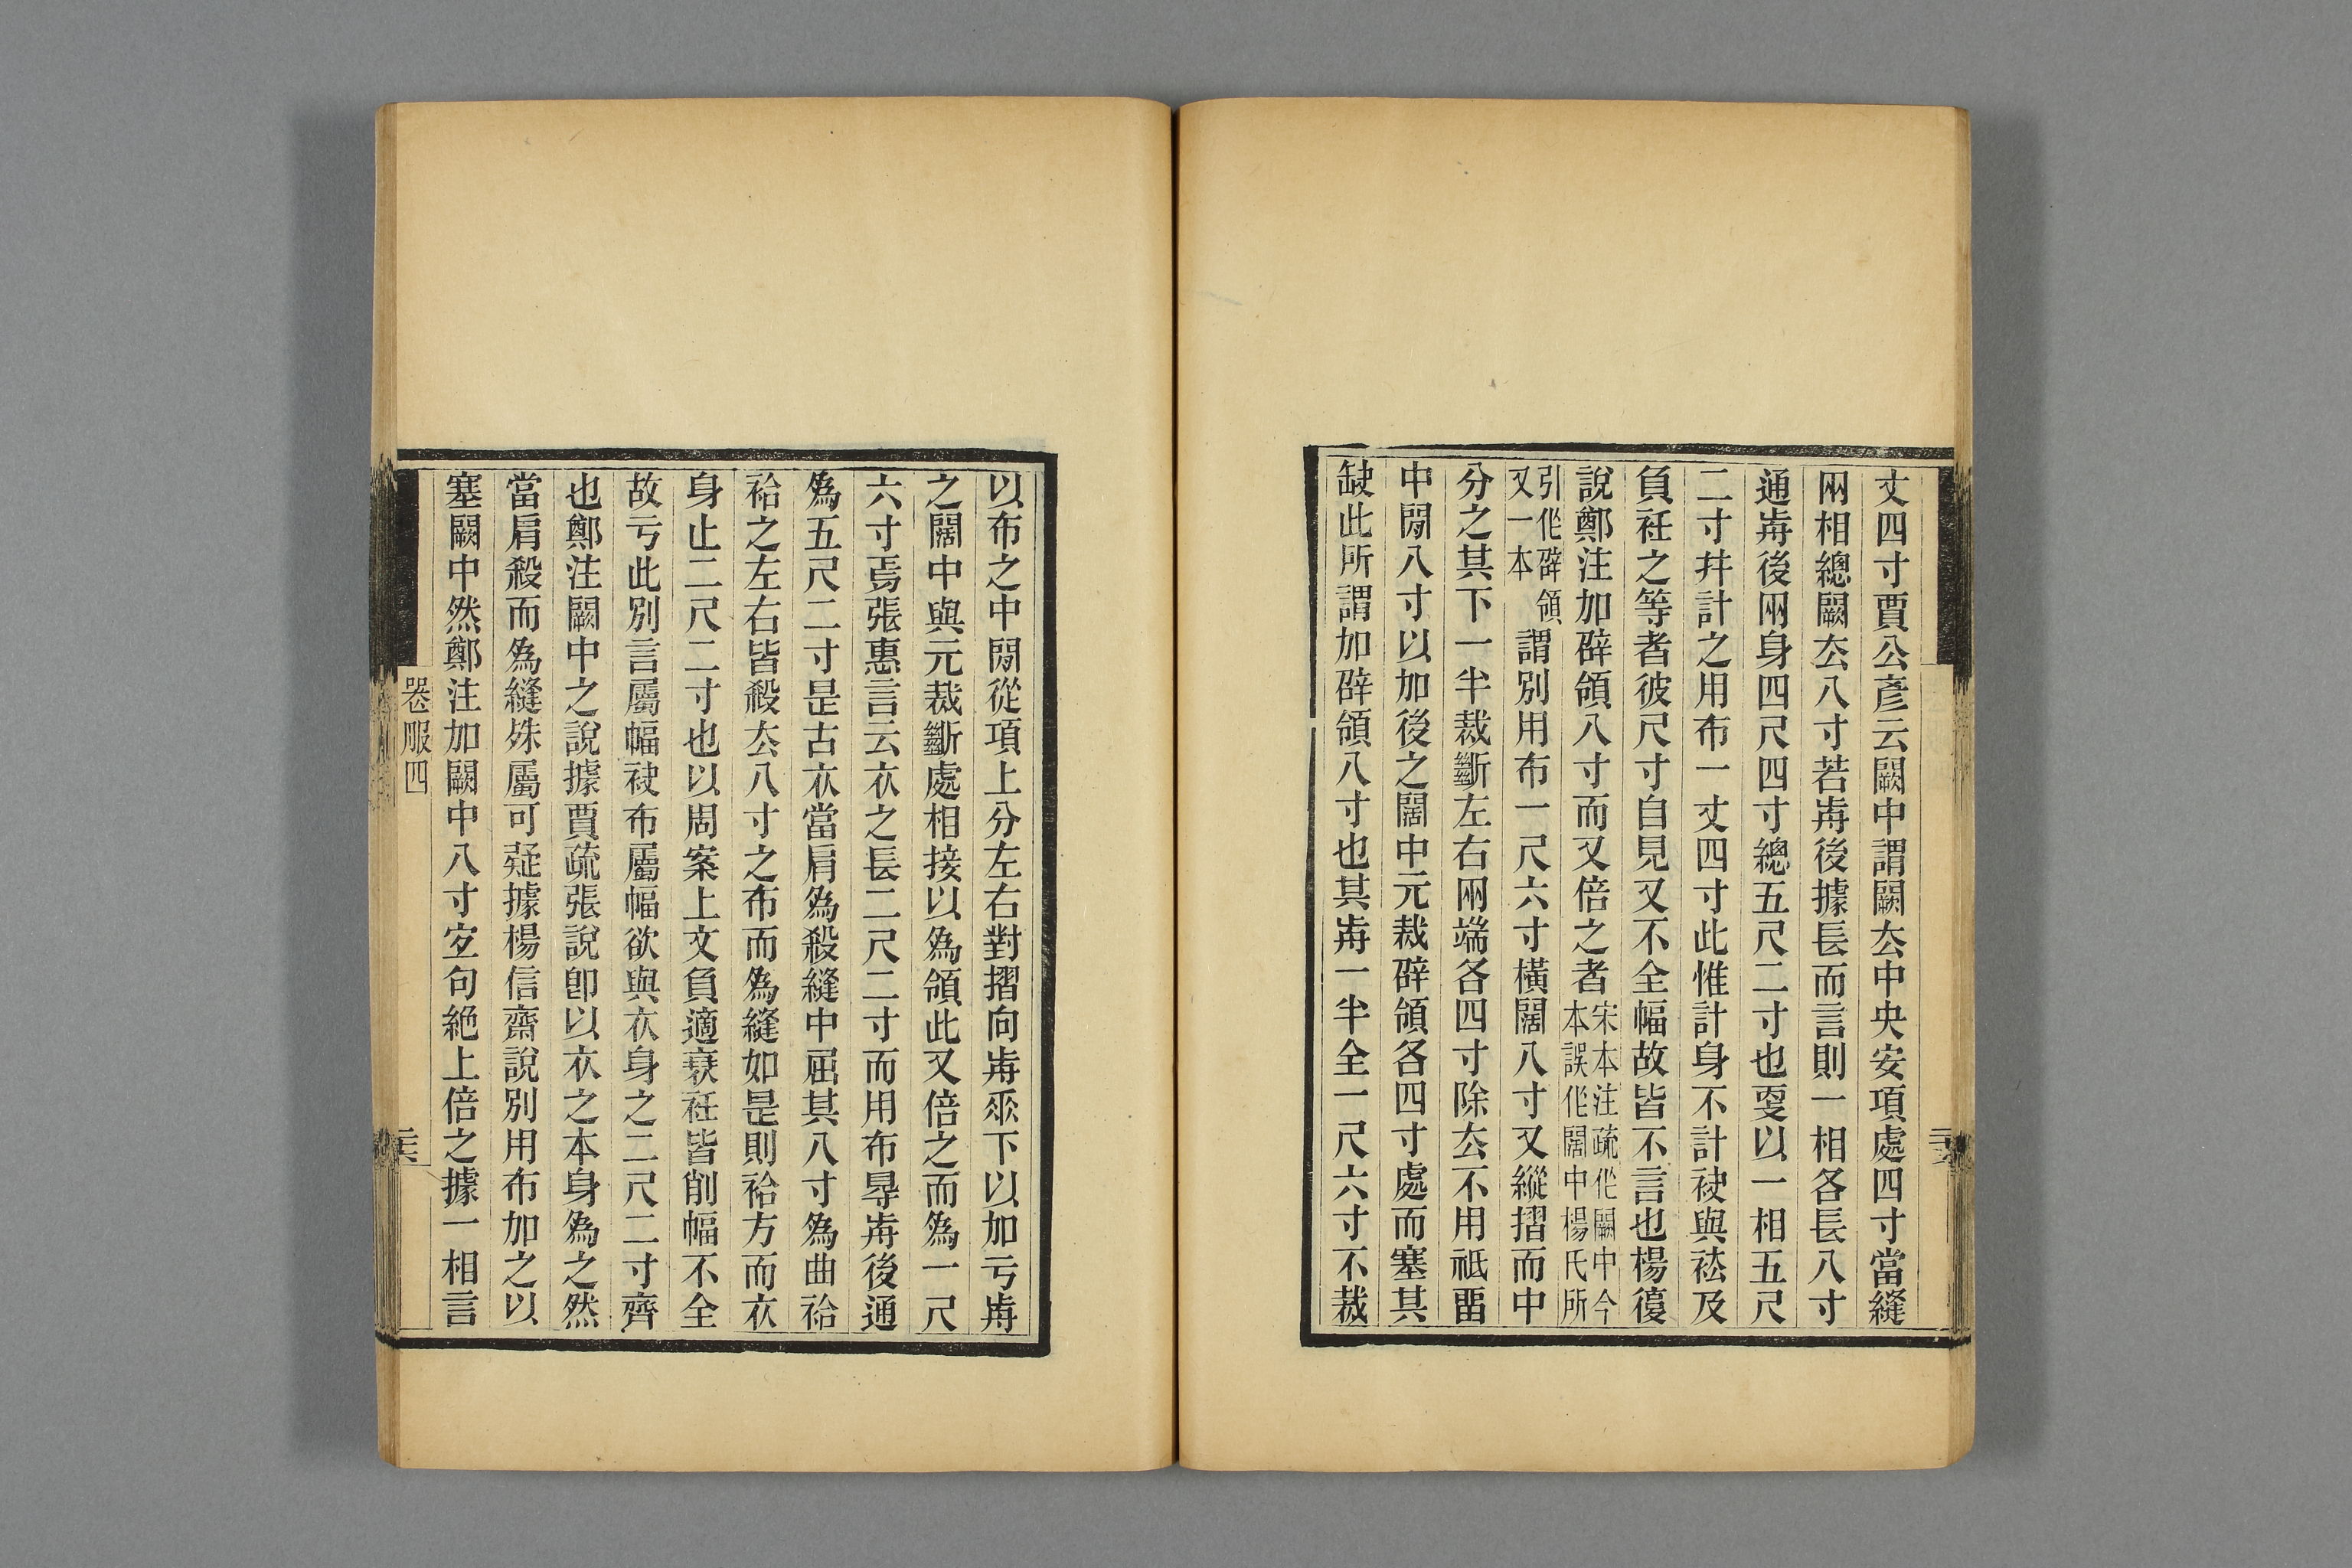 丈四寸賈公彥云闕中謂闕厺中央安項處四寸當縫
兩相總闕厺八寸若歬後據長而言則一相各長八寸
通歬後兩身四尺四寸總五尺二寸也㪅以一相五尺
二寸幷計之用布一丈四寸此惟計身不計袂與袪及
負衽之等者彼尺寸自見又不全幅故皆不言也楊復
說鄭注加辟領八寸而又倍之者宋本注疏作闕中今
本誤作闊中楊氏所
引作辟領
又一本
謂別用布一尺六寸橫闊八寸又縱摺而中
分之其下一半裁斷左右兩端各四寸除厺不用祗畱
中閒八寸以加後之闊中元裁辟領各四寸處而塞其
缺此所謂加辟領八寸也其歬一半全一尺六寸不裁
以布之中閒從項上分左右對摺向歬𠂹下以加亏歬
之闊中與元裁斷處相接以爲領此又倍之而爲一尺
六寸焉張惠言云衣之長二尺二寸而用布㝵歬後通
爲五尺二寸是古衣當肩爲殺縫中屈其八寸爲曲袷
袷之左右皆殺厺八寸之布而爲縫如是則袷方而衣
身止二尺二寸也以周案上文負適衰衽皆削幅不全
故亏此別言屬幅袂布屬幅欲與衣身之二尺二寸齊
也鄭注闕中之說據賈疏張說卽以衣之本身爲之然
當肩殺而爲縫殊屬可疑據楊信齋說別用布加之以
塞闕中然鄭注加闕中八寸㝎句絶上倍之據一相言
卷服四
二六